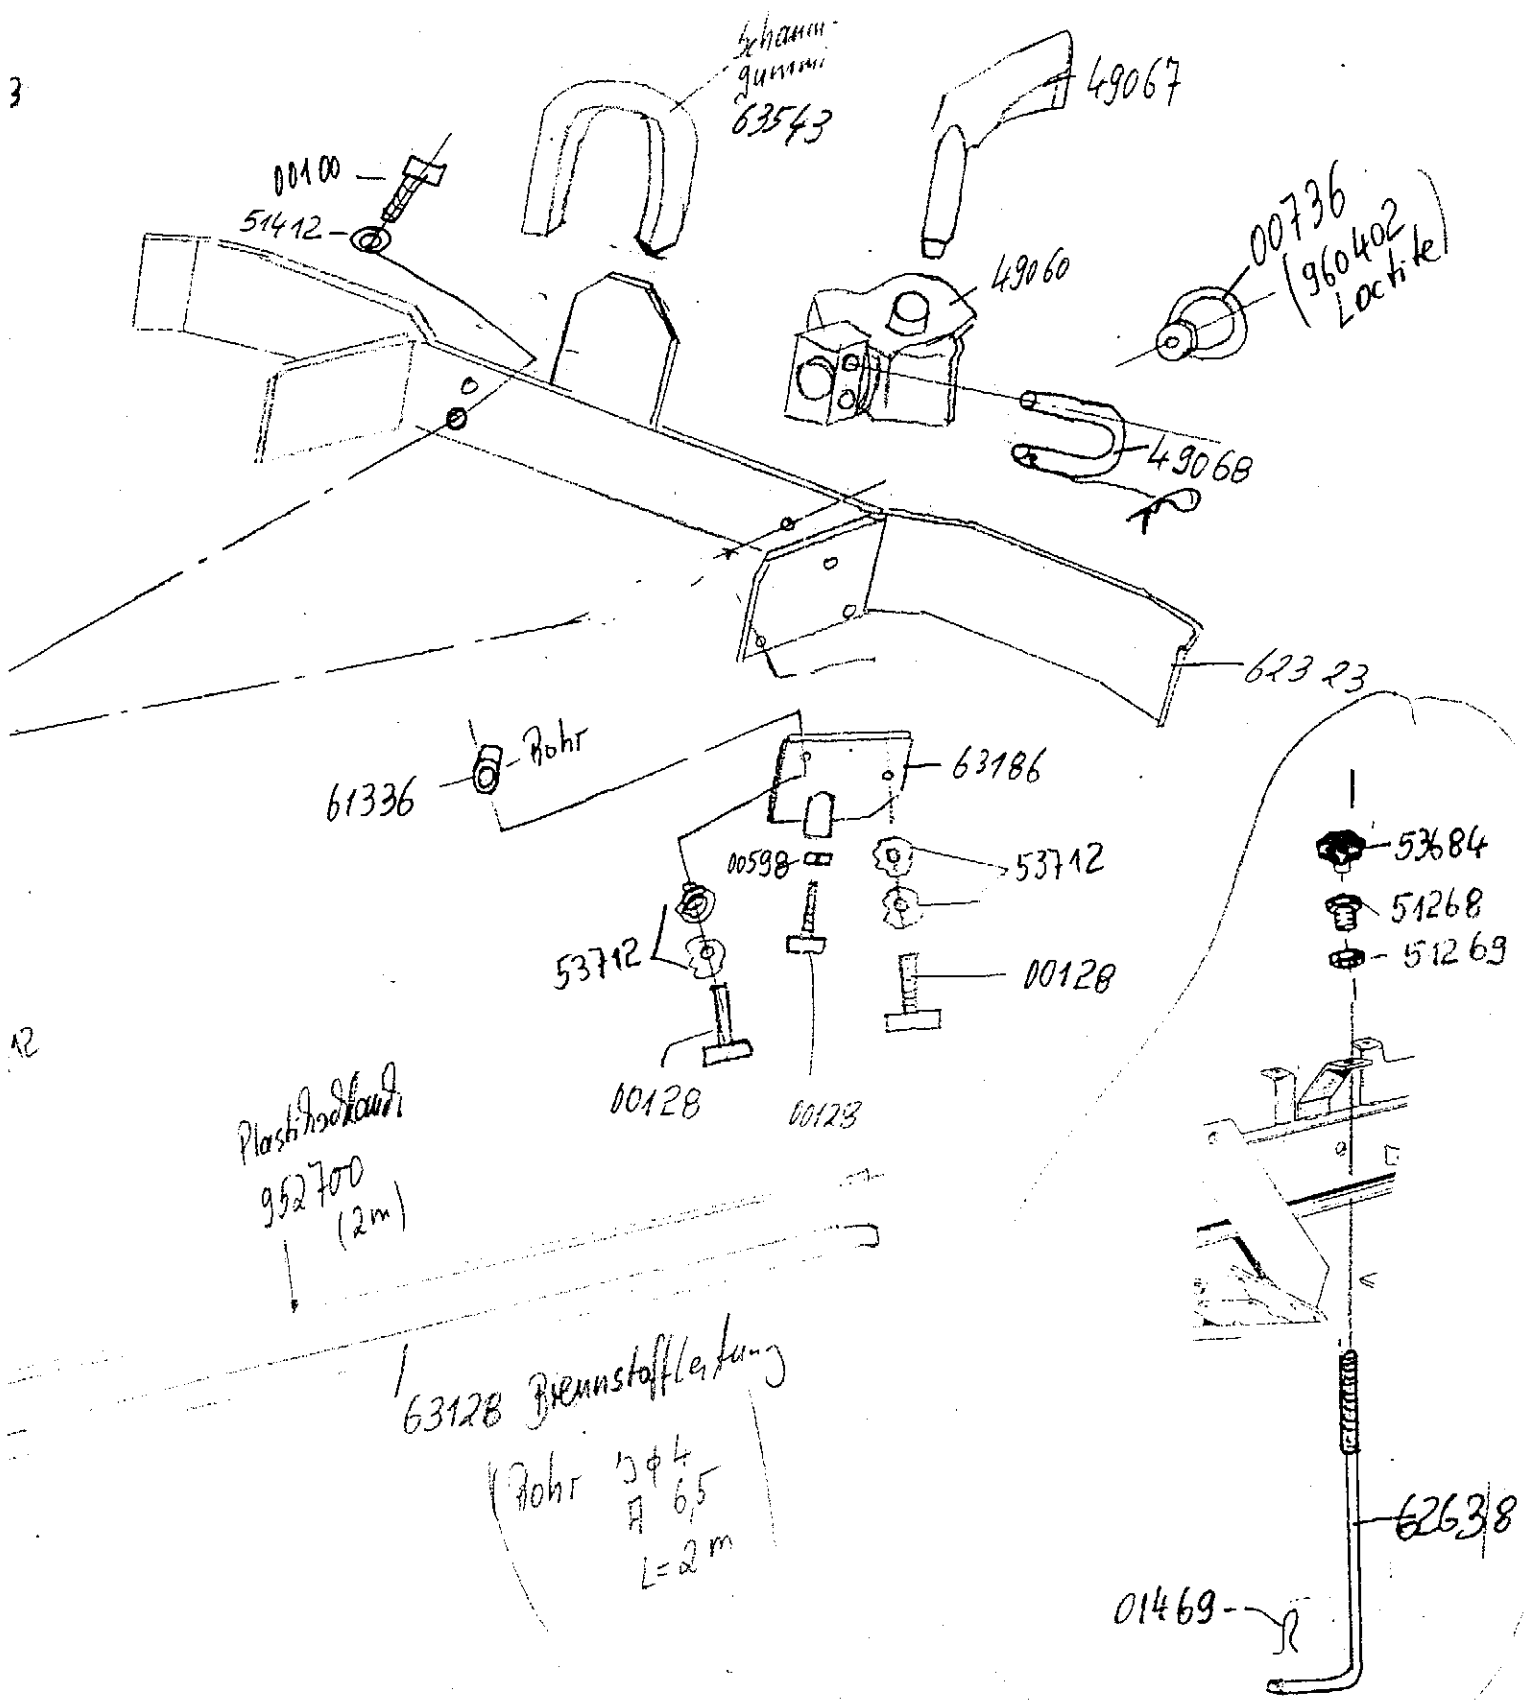 3
Schaum-
gummi
63543
49067
00100
51412
49060
00736
(960402
Loctite)
49068
62323
61336
Rohr
63186
00598
53712
53712
00128
00128
00128
53684
51268
51269
12
952700
(2m)
63128 Brennstoffleitung
(Rohr J φ 4
A 6,5
L=2m
62638
01469